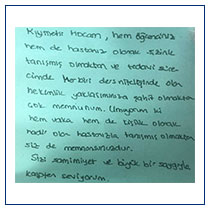 Kıymetli Hocam, hem öğrenciniz
hem de hastanız olarak sizinle
tanışmış olmaktan ve tedavi süre
cimde her biri ders niteliğinde olan
hekimlik yaklaşımınıza şahit olmaktan
çok memnunum. Umuyorum ki
hem vaka hem de kişilik olarak
nadir olan hastanızla tanışmış olmaktan
siz de memnunsunuzdur.
Sizi samimiyet ve büyük bir saygıyla
kalpten seviyorum.